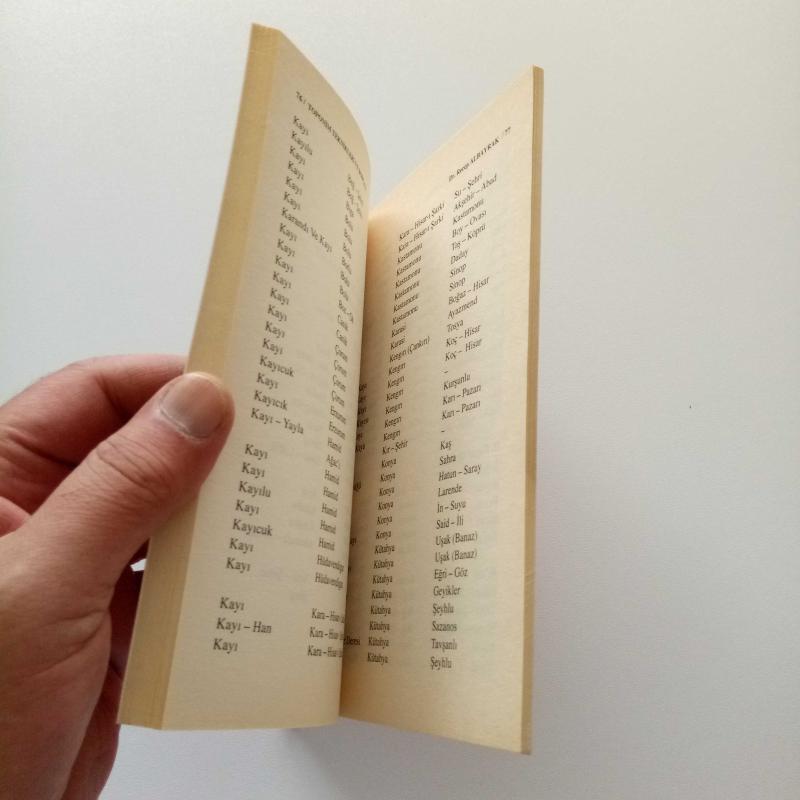 76 / TOPONİM
Kayı
Kayılu
Kayı
Kayı
Kayı
Kayı Bolu
Karandı Ve Kayı Bolu
Kayı Bolu
Kayı Bolu
Kayı Bolu
Kayı Bolu
Kayı
Kayı Canik
Kayı Çorum
Kayı Çorum
Kayıcuk Çorum
Kayı Çorum
Kayıcık Erzurum
Kayı – Yayla Erzurum
Hamid
Kayı
Kayı Hamid
Kayılu Hamid
Kayı Hamid
Kayıcuk Hamid
Kayı Hamid
Kayı Hüdavendigar
Hüdavendigar
Kayı Kara – Hisar
Kayı – Han Kara – Hisar
Kayı Kara – Hisar
Dr. Recep ALBAYRAK / 77
Kara – Hisar-ı Şarki Su – Şehri
Kara – Hisar-ı Şarki Akşehir – Abad
Kastamonu Kastamonu
Kastamonu Boy – Ovası
Kastamonu Taş – Köprü
Kastamonu Daday
Kastamonu Sinop
Kastamonu Sinop
Karasi Boğaz – Hisar
Karasi Ayazmend
Kengırı (Çankırı) Tosya
Kengırı Koç – Hisar
Kengırı Koç – Hisar
Kengırı –
Kengırı Kurşunlu
Kengırı Karı – Pazarı
Kengırı Karı – Pazarı
Kır – Şehir –
Konya Kaş
Konya Sahra
Konya Hatun – Saray
Konya Larende
Konya İn – Suyu
Konya Said – İli
Kütahya Uşak (Banaz)
Kütahya Uşak (Banaz)
Kütahya Eğri – Göz
Kütahya Geyikler
Kütahya Şeyhlu
Kütahya Sazanos
Kütahya Tavşanlı
Kütahya Şeyhlu